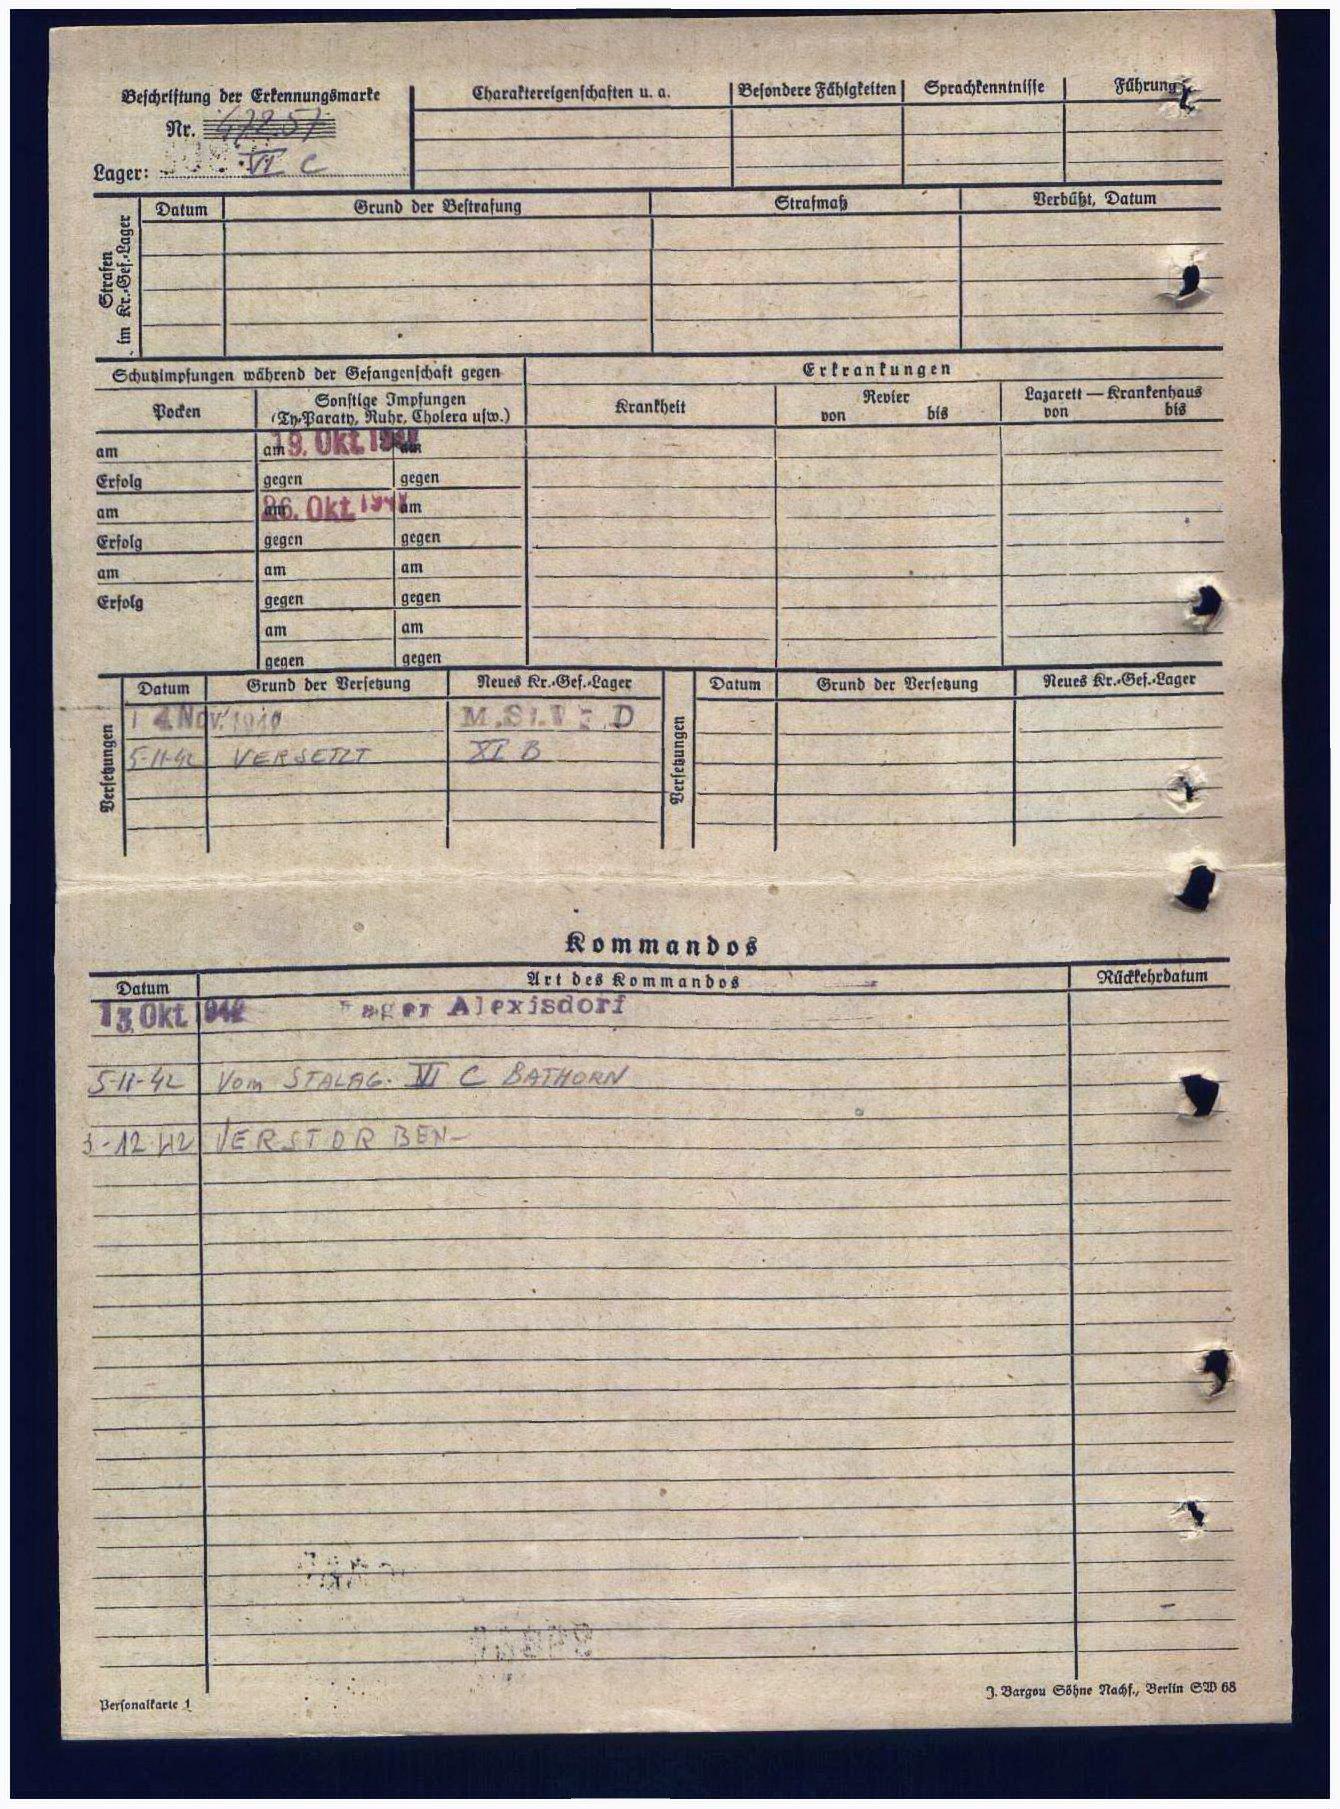 Beschriftung der Erkennungsmarke
Nr. 47257
Lager: VI C
Charaktereigenschaften u. a.
Besondere Fähigkeiten
Sprachkenntnisse
Führung
Strafen im Kr.-Gef.-Lager
Datum
Grund der Bestrafung
Strafmaß
Verbüßt, Datum
Schutzimpfungen während der Gefangenschaft gegen
Erkrankungen
Pocken
Sonstige Impfungen
(Ty-Paraty, Ruhr, Cholera usw.)
Krankheit
Revier
von bis
Lazarett — Krankenhaus
von bis
am am 19. Okt. am
Erfolg gegen gegen
am am 26. Okt. am
Erfolg gegen gegen
am am am
Erfolg gegen gegen
am am
gegen gegen
Versetzungen
Datum Grund der Versetzung Neues Kr.-Gef.-Lager
4. Nov. M. St. D
5-11-42 VERSETZT XI B
Versetzungen
Datum Grund der Versetzung Neues Kr.-Gef.-Lager
Kommandos
Datum Art des Kommandos Rückkehrdatum
13. Okt. 1942 Lager Alexisdorf
5-11-42 Vom STALAG. VI C BATHORN
3-12-42 VERSTORBEN-
Personalkarte 1
J. Bargou Söhne Nachf., Berlin SW 68